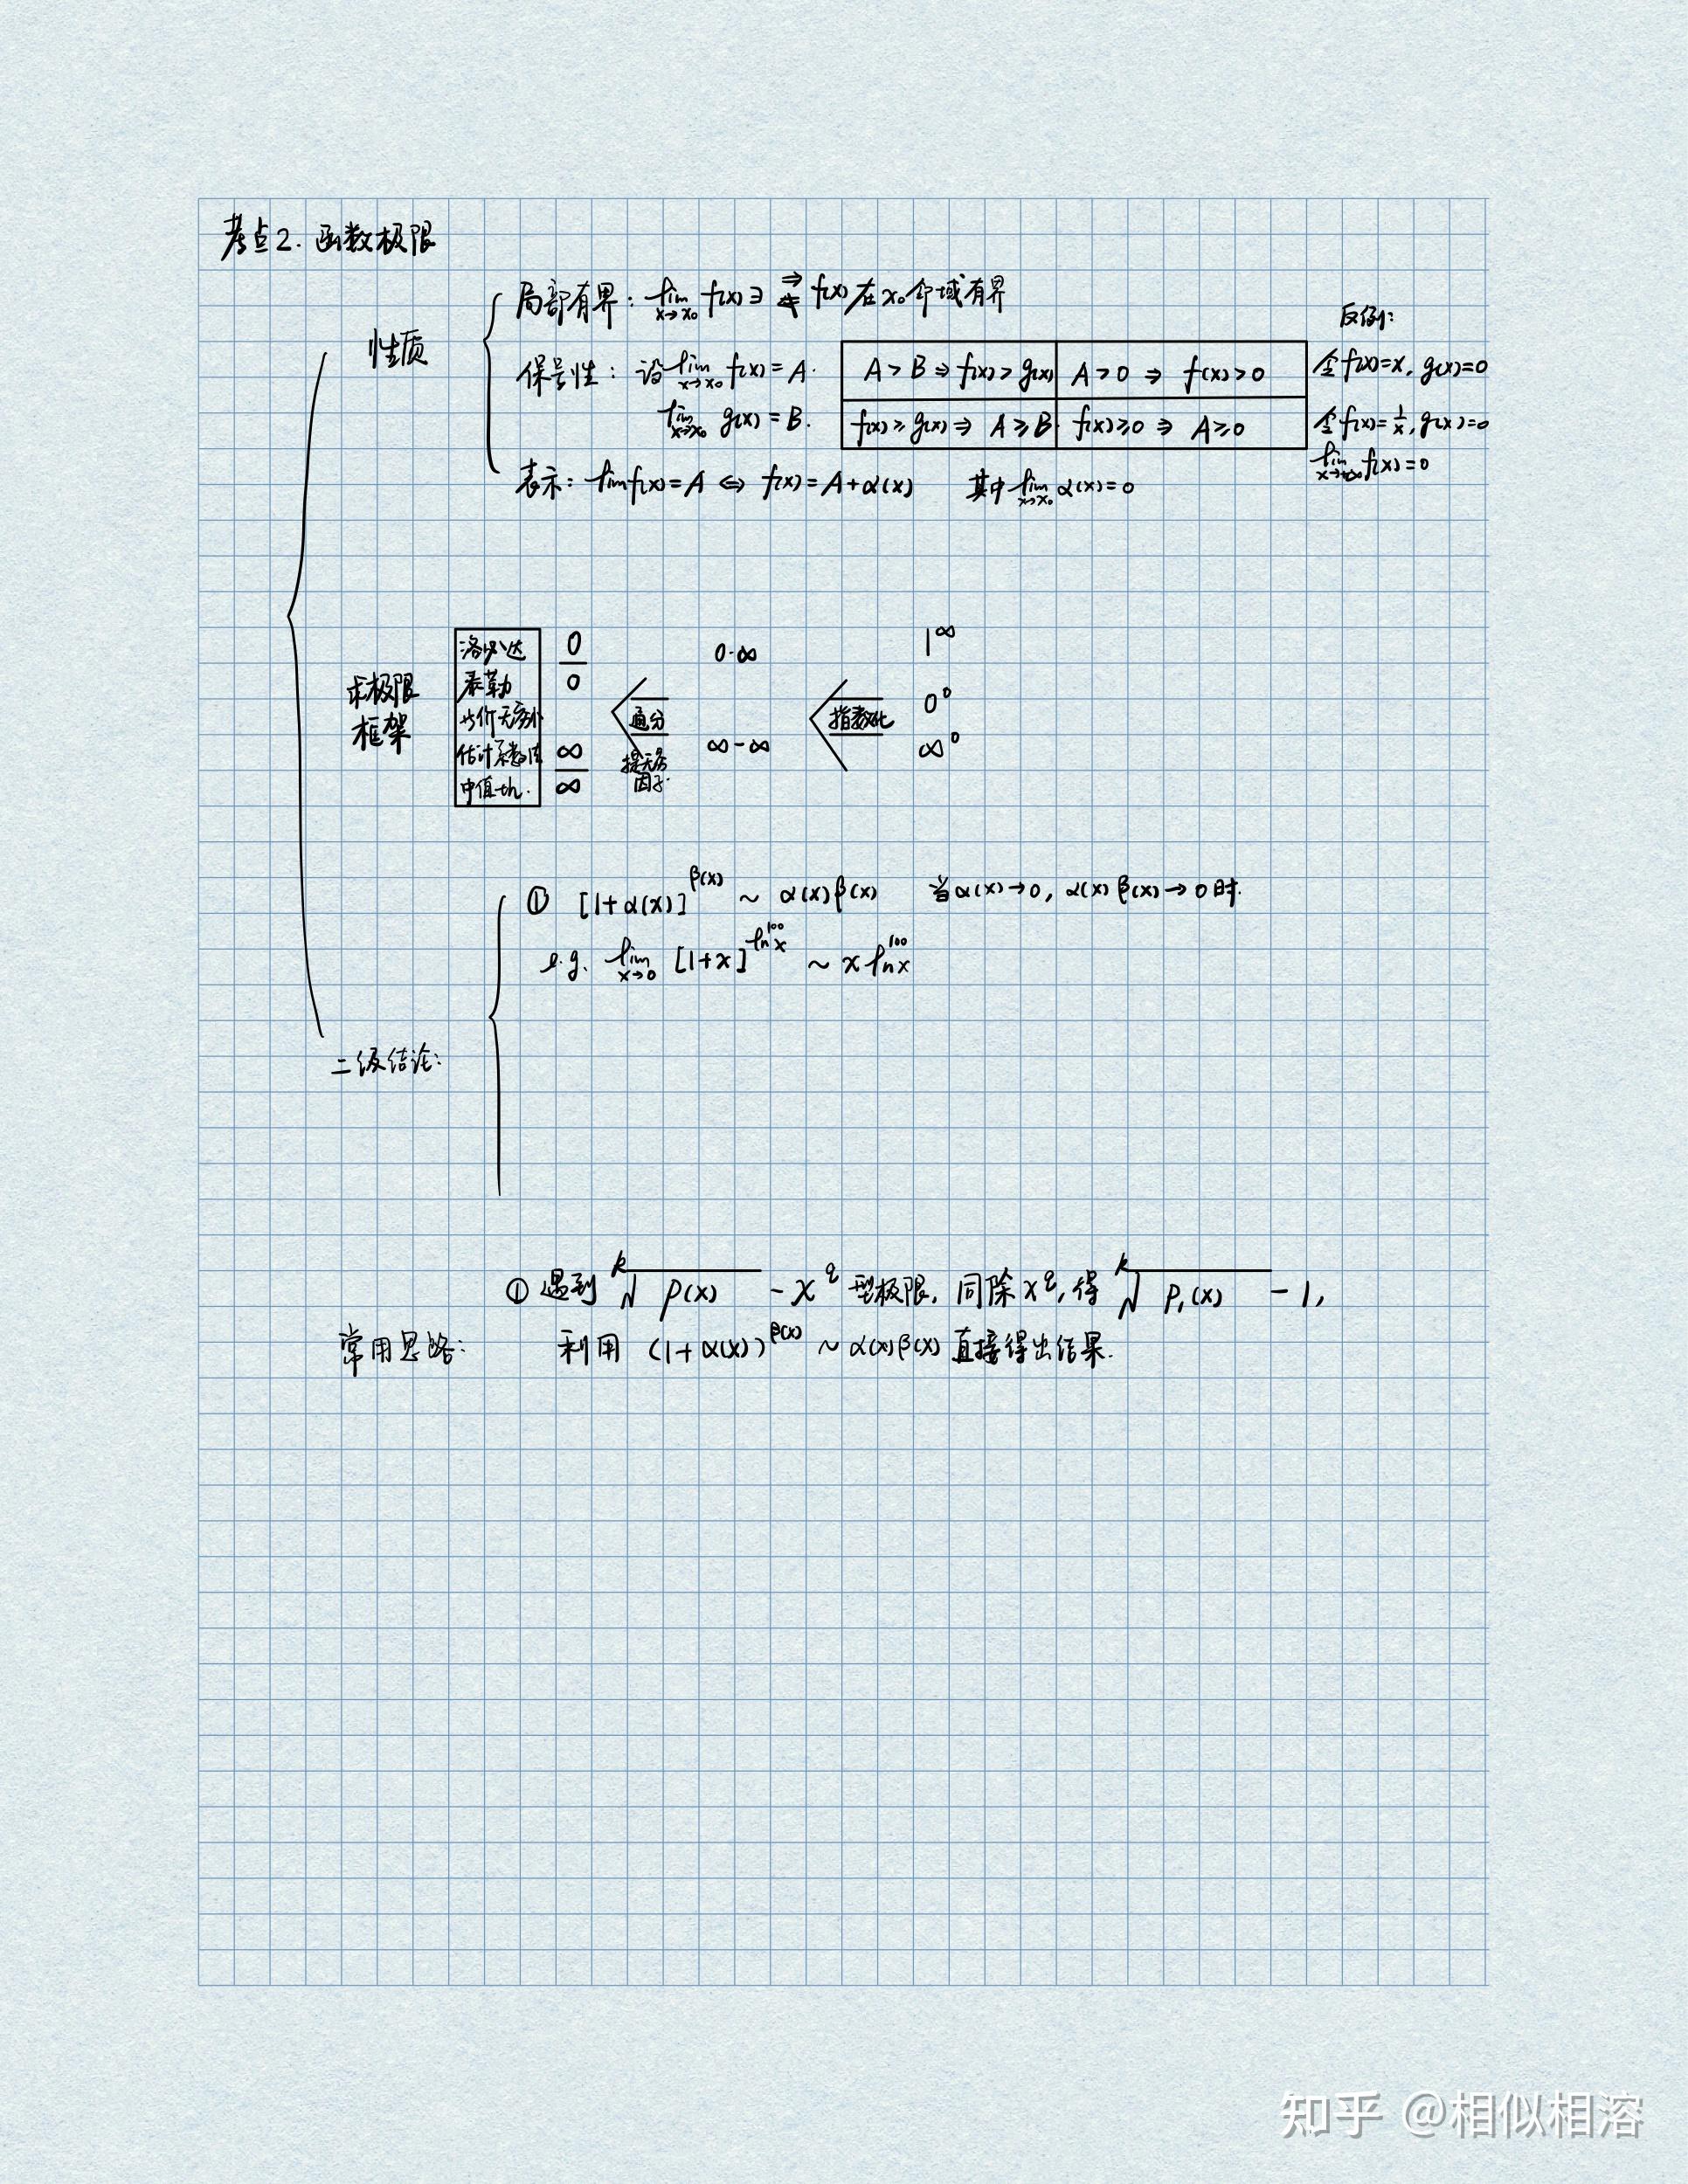 考点2. 函数极限
性质
局部有界: lim x→x₀ f(x)∃ ⇒⇍ f(x)在x₀邻域有界
保号性: 设 lim x→x₀ f(x)=A.
lim x→x₀ g(x)=B.
A>B ⇒ f(x)>g(x) A>0 ⇒ f(x)>0
f(x)≥g(x) ⇒ A≥B f(x)≥0 ⇒ A≥0
反例:
令f(x)=x, g(x)=0
令f(x)=1/x, g(x)=0
lim x→+∞ f(x)=0
表示: lim f(x)=A ⇔ f(x)=A+α(x) 其中 lim x→x₀ α(x)=0
求极限
框架
洛必达
泰勒
等价无穷小
估计系数法
中值th.
0/0
∞/∞
通分
提无穷
因子.
0·∞
∞-∞
指数化
1^∞
0^0
∞^0
二级结论:
① [1+α(x)]^β(x) ~ α(x)β(x) 当α(x)→0, α(x)β(x)→0时.
e.g. lim x→0 [1+x]^ln^100 x ~ x ln^100 x
常用思路:
① 遇到 ᵏ√P(x) - x^q 型极限, 同除x^q, 得 ᵏ√P₁(x) - 1,
利用 (1+α(x))^β(x) ~ α(x)β(x) 直接得出结果.
知乎 @相似相溶